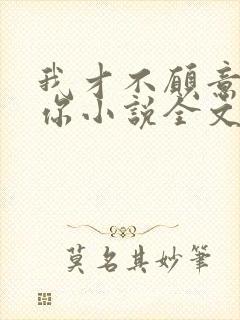 我才不愿意
你小说全文
莫名其妙笔